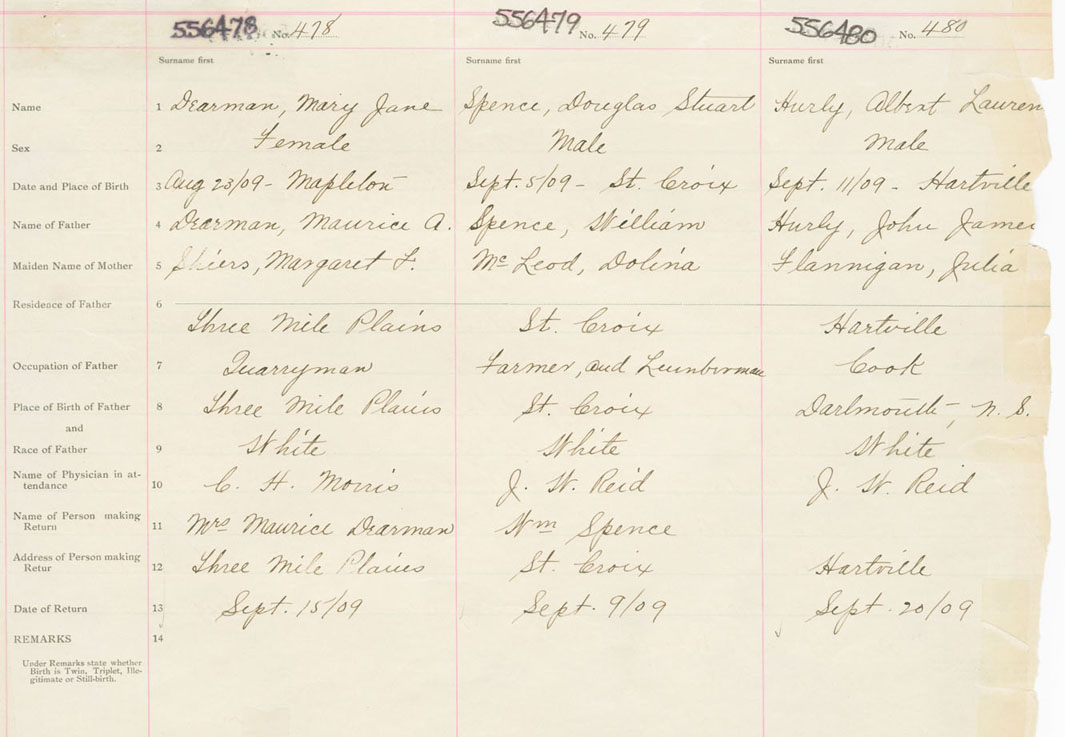 556478 No. 478 556479 No. 479 556480 No. 480
Surname first Surname first Surname first
Name 1 Dearman, Mary Jane Spence, Douglas Stuart Hurly, Albert Lauren
Sex 2 Female Male Male
Date and Place of Birth 3 Aug 23/09 - Mapleton Sept. 5/09 - St. Croix Sept. 11/09 - Hartville
Name of Father 4 Dearman, Maurice A. Spence, William Hurly, John James
Maiden Name of Mother 5 Shiers, Margaret F. Mc Leod, Dolina Flannigan, Julia
Residence of Father 6
Three Mile Plains St. Croix Hartville
Occupation of Father 7 Quarryman Farmer, and Lumberman Cook
Place of Birth of Father 8 Three Mile Plains St. Croix Dartmouth, N. S.
and
Race of Father 9 White White White
Name of Physician in at-
tendance 10 C. H. Morris J. W. Reid J. W. Reid
Name of Person making
Return 11 Mrs Maurice Dearman Wm Spence
Address of Person making
Retur 12 Three Mile Plains St. Croix Hartville
Date of Return 13 Sept. 15/09 Sept. 9/09 Sept. 20/09
REMARKS 14
Under Remarks state whether
Birth is Twin, Triplet, Ille-
gitimate or Still-birth.